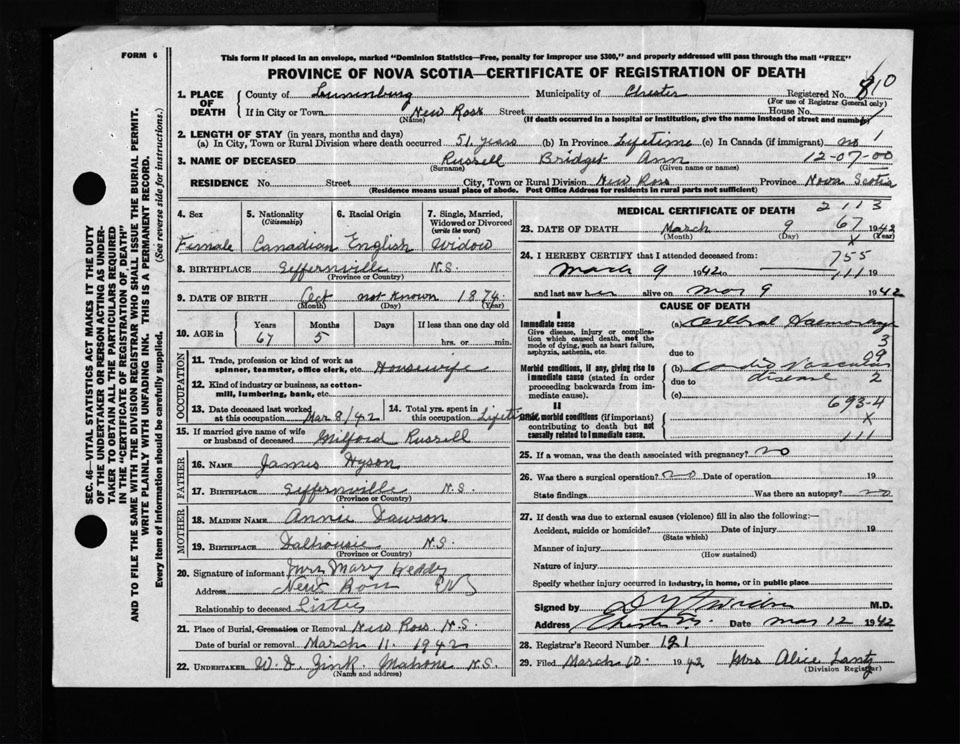 FORM 6
This form if placed in an envelope, marked "Dominion Statistics—Free, penalty for improper use $300," and properly addressed will pass through the mail "FREE"
PROVINCE OF NOVA SCOTIA—CERTIFICATE OF REGISTRATION OF DEATH
SEC. 46—VITAL STATISTICS ACT MAKES IT THE DUTY
OF THE UNDERTAKER OR PERSON ACTING AS UNDER-
TAKER TO OBTAIN ALL THE PARTICULARS REQUIRED
IN THE "CERTIFICATE OF REGISTRATION OF DEATH"
AND TO FILE THE SAME WITH THE DIVISION REGISTRAR WHO SHALL ISSUE THE BURIAL PERMIT.
WRITE PLAINLY WITH UNFADING INK. THIS IS A PERMANENT RECORD.
Every item of Information should be carefully supplied. (See reverse side for instructions.)
1. PLACE OF DEATH County of Lunenburg Municipality of Chester Registered No. 810
(For use of Registrar General only)
If in City or Town New Ross Street House No.
(Name) (If death occurred in a hospital or institution, give the name instead of street and number)
2. LENGTH OF STAY (in years, months and days)
(a) In City, Town or Rural Division where death occurred 51 years (b) In Province Lifetime (c) In Canada (if immigrant) no 1
3. NAME OF DECEASED Russell Bridget Ann 12-07-00
(Surname) (Given name or names)
RESIDENCE No. Street City, Town or Rural Division New Ross Province Nova Scotia
(Residence means usual place of abode. Post Office Address for residents in rural parts not sufficient)
4. Sex Female
5. Nationality (Citizenship) Canadian
6. Racial Origin English
7. Single, Married, Widowed or Divorced (write the word) Widow
8. BIRTHPLACE Jeffernville N.S.
(Province or Country)
9. DATE OF BIRTH Oct not known 1874
(Month) (Day) (Year)
10. AGE in Years 67 Months 5 Days If less than one day old hrs. or min.
OCCUPATION
11. Trade, profession or kind of work as spinner, teamster, office clerk, etc. Housewife
12. Kind of industry or business, as cotton-mill, lumbering, bank, etc.
13. Date deceased last worked at this occupation Mar 8/42
14. Total yrs. spent in this occupation Lifetime
15. If married give name of wife or husband of deceased Milford Russell
FATHER
16. NAME James Hyson
17. BIRTHPLACE Jeffernville N.S.
(Province or Country)
MOTHER
18. MAIDEN NAME Annie Dawson
19. BIRTHPLACE Dalhousie N.S.
(Province or Country)
20. Signature of informant Mrs Mary
Address New Ross
Relationship to deceased Sister
21. Place of Burial, Cremation or Removal New Ross N.S.
Date of burial or removal March 11. 1942
22. UNDERTAKER W. D. Zink. Mahone N.S.
(Name and address)
MEDICAL CERTIFICATE OF DEATH 2113
23. DATE OF DEATH March 9 67 1942
(Month) (Day) x (Year)
24. I HEREBY CERTIFY that I attended deceased from: 755
March 9 1942 to 111 19
and last saw her alive on Mar 9 1942
CAUSE OF DEATH
I
Immediate cause
Give disease, injury or complication which caused death, not the mode of dying, such as heart failure, asphyxia, asthenia, etc.
(a) Cerebral Haemorrage
3
due to 99
Morbid conditions, if any, giving rise to immediate cause (stated in order proceeding backwards from immediate cause).
(b) Vascular
due to disease 2
(c)
693-4
II
Other morbid conditions (if important) contributing to death but not causally related to immediate cause.
x
111
25. If a woman, was the death associated with pregnancy? no
26. Was there a surgical operation? no Date of operation 19
State findings Was there an autopsy? no
27. If death was due to external causes (violence) fill in also the following:—
Accident, suicide or homicide? Date of injury 19
(State which)
Manner of injury
(How sustained)
Nature of injury
Specify whether injury occurred in industry, in home, or in public place
Signed by M.D.
Address Chester N.S. Date Mar 12 1942
28. Registrar's Record Number 121
29. Filed March 10. 1942 Mrs Alice Lantz
(Division Registrar)